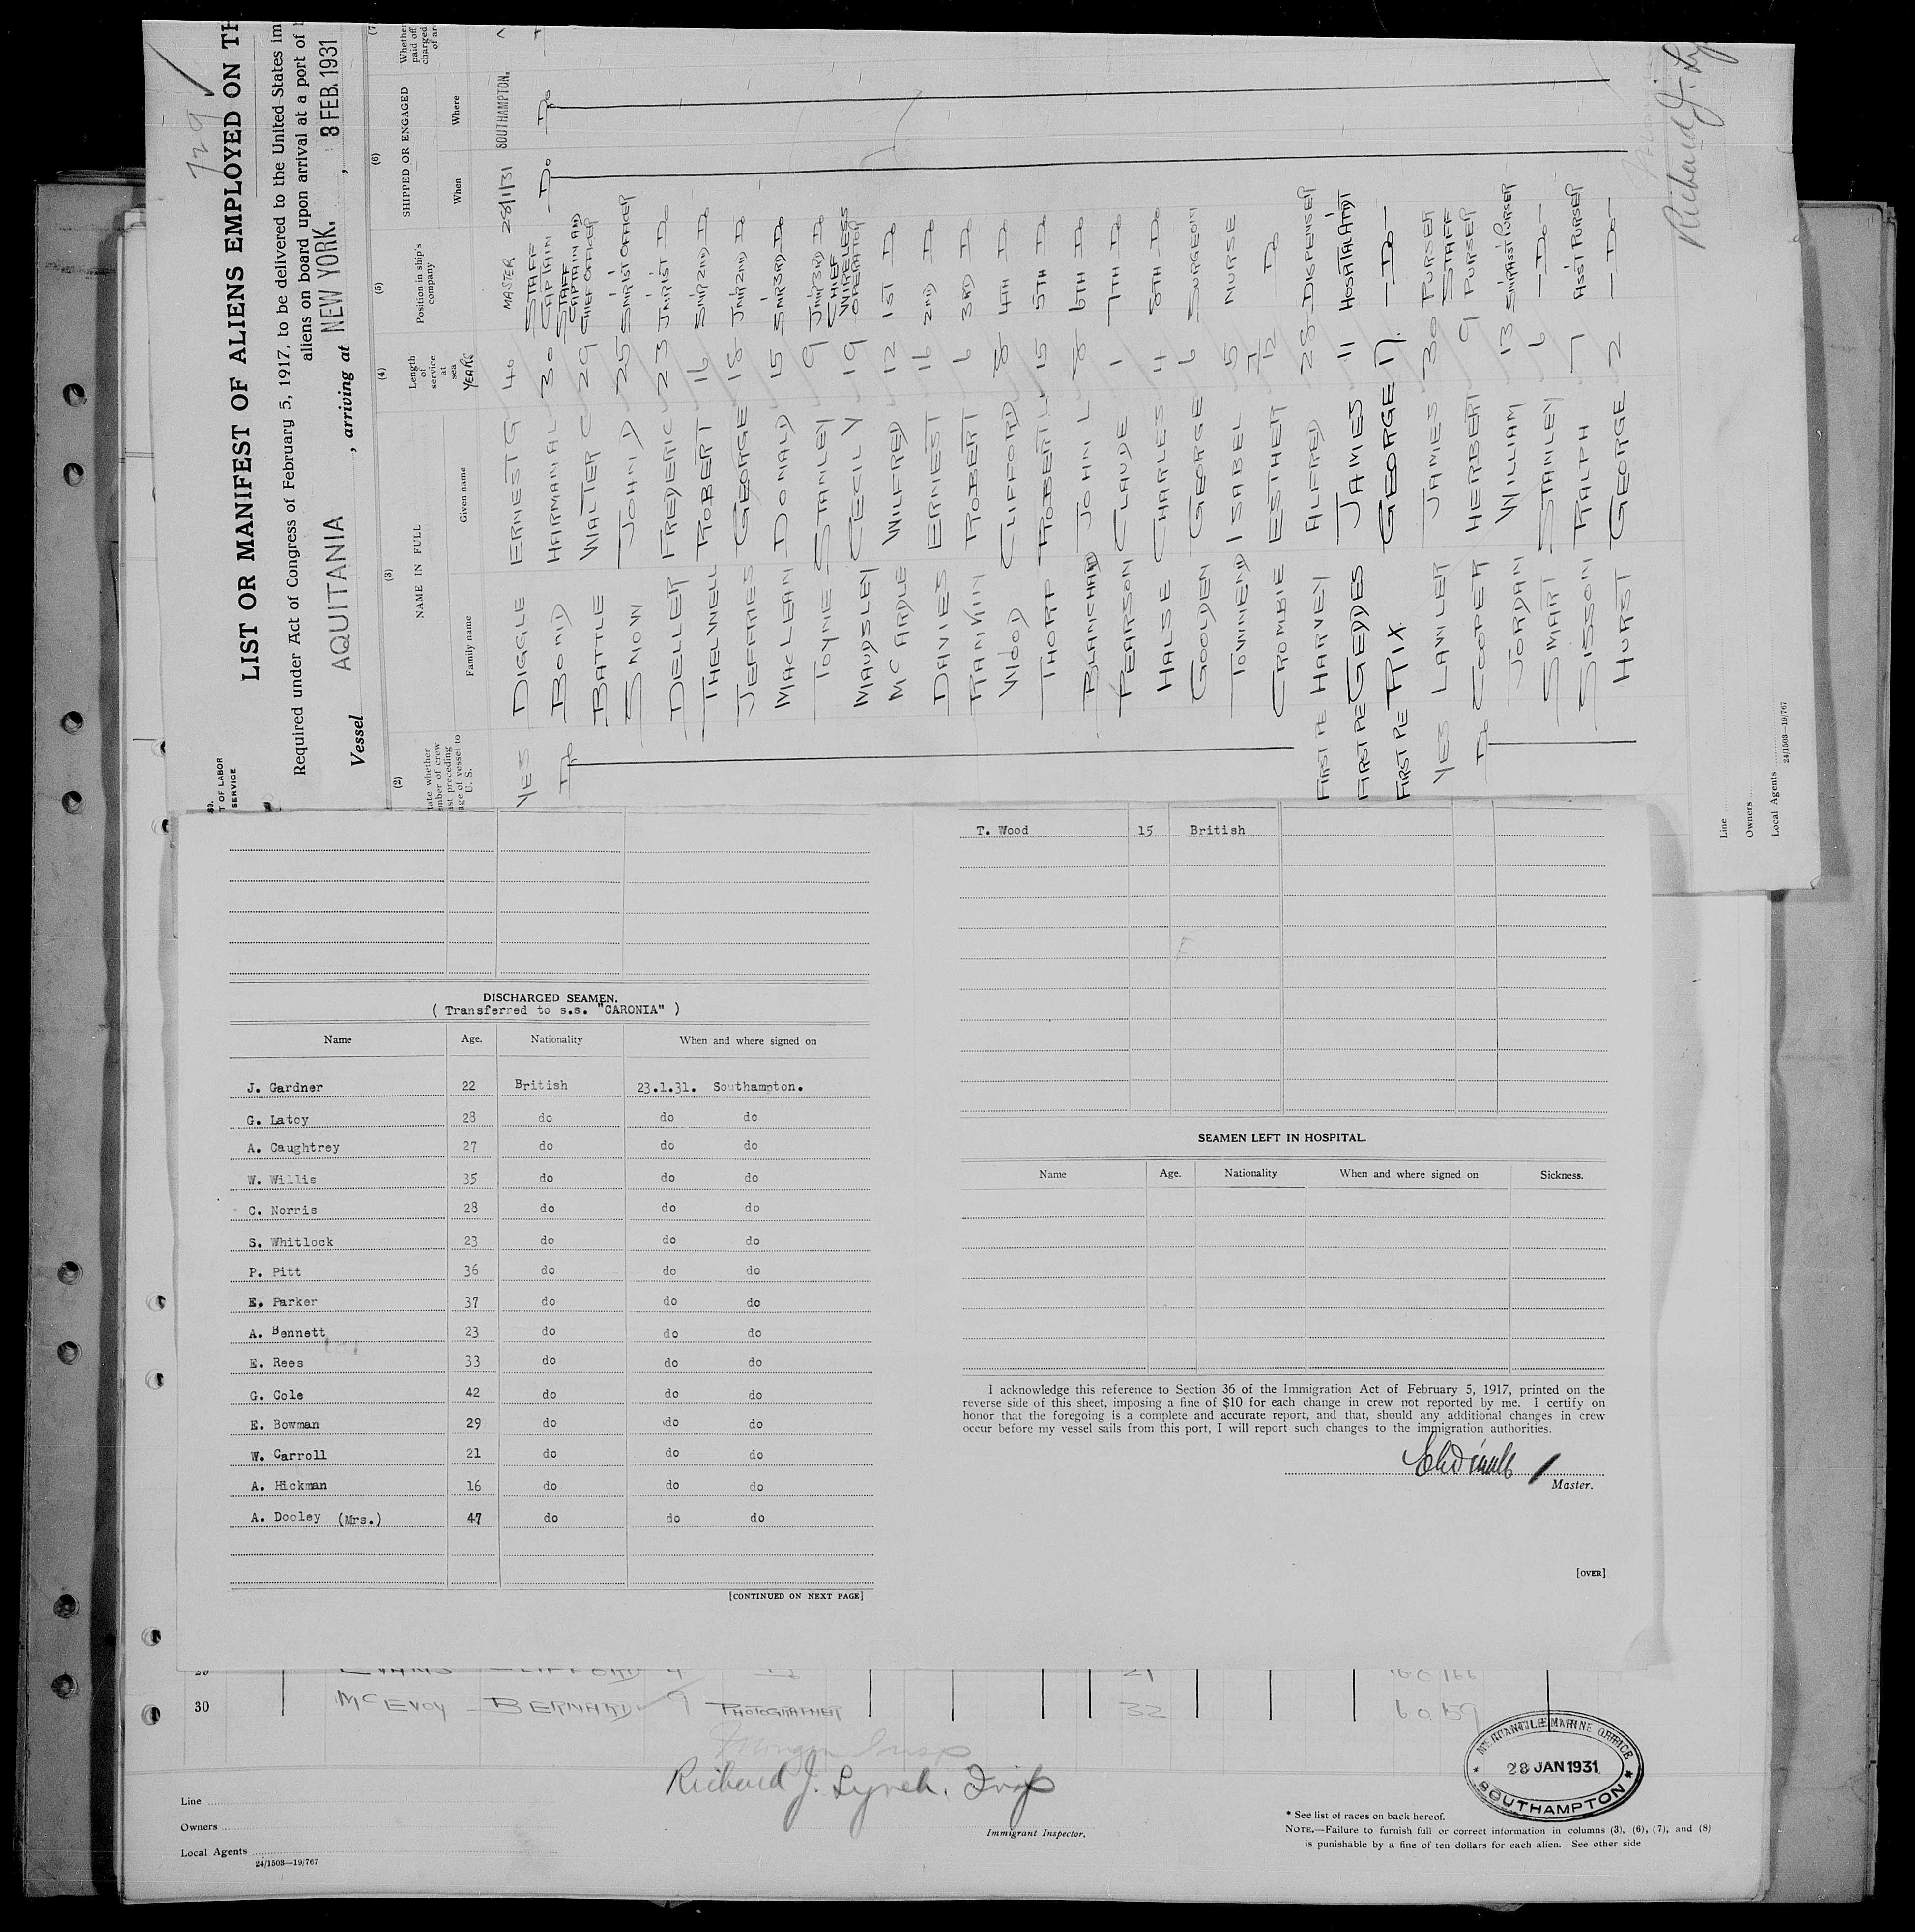 729
LIST OR MANIFEST OF ALIENS EMPLOYED ON TH
Required under Act of Congress of February 5, 1917, to be delivered to the United States im
aliens on board upon arrival at a port of
Vessel AQUITANIA, arriving at NEW YORK. , 8 FEB. 1931
T OF LABOR
SERVICE
(2) (3) (4) (5) (6) (7
tate whether
mber of crew
st preceding
age of vessel to
U. S.
NAME IN FULL
Family name Given name
Length of service at sea
YEARS
Position in ship's company
SHIPPED OR ENGAGED
When Where
Whether
paid off
charged
of ar
YES DIGGLE ERNEST G 40 MASTER 28/1/31 SOUTHAMPTON.
Do BOND HARMAN A L 30 STAFF CAPTAIN Do Do
BATTLE WALTER C 29 STAFF CAPTAIN AND CHIEF OFFICER
SNOW JOHN D 25 SNR 1ST OFFICER
DELLER FREDERIC 23 JNR 1ST Do
THELWELL ROBERT 16 SNR 2ND Do
JEFFRIES GEORGE 18 JNR 2ND Do
MACLEAN DONALD 15 SNR 3RD Do
TOYNE STANLEY 9 JNR 3RD Do
MAUDSLEY CECIL V 19 CHIEF WIRELESS OPERATOR
MCARDLE WILFRED 12 1ST Do
DAVIES ERNEST 16 2ND Do
RANKIN ROBERT 6 3RD Do
WOOD CLIFFORD 8 4TH Do
THORP ROBERT L 15 5TH Do
BLANCHARD JOHN L 8 6TH Do
PEARSON CLAUDE 1 7TH Do
HALSE CHARLES 4 8TH Do
GOOLDEN GEORGE 6 SURGEON
TOWNEND ISABEL 5 NURSE
CROMBIE ESTHER 7/12 Do
FIRST PE HARVEY ALFRED 28 DISPENSER
FIRST PE GEDDES JAMES 11 HOSPITAL ATTDT
FIRST PE RIX. GEORGE 17. — Do —
YES LAWLER JAMES 30 PURSER
Do COOPER HERBERT 9 STAFF PURSER
JORDAN WILLIAM 13 SNR ASST PURSER
SMART STANLEY 6 — Do —
SISSON RALPH 7 ASST PURSER
HURST GEORGE 2 — Do —
Richard J. Ly
Line
Owners
Local Agents
24/1503—19/767
DISCHARGED SEAMEN.
( Transferred to s.s. "CARONIA" )
Name Age. Nationality When and where signed on
J. Gardner 22 British 23.1.31. Southampton.
G. Latoy 28 do do do
A. Caughtrey 27 do do do
W. Willis 35 do do do
C. Norris 28 do do do
S. Whitlock 23 do do do
P. Pitt 36 do do do
E. Parker 37 do do do
A. Bennett 23 do do do
E. Rees 33 do do do
G. Cole 42 do do do
E. Bowman 29 do do do
W. Carroll 21 do do do
A. Hickman 16 do do do
A. Dooley (Mrs.) 47 do do do
[CONTINUED ON NEXT PAGE]
T. Wood 15 British
SEAMEN LEFT IN HOSPITAL.
Name Age. Nationality When and where signed on Sickness.
I acknowledge this reference to Section 36 of the Immigration Act of February 5, 1917, printed on the
reverse side of this sheet, imposing a fine of $10 for each change in crew not reported by me. I certify on
honor that the foregoing is a complete and accurate report, and that, should any additional changes in crew
occur before my vessel sails from this port, I will report such changes to the immigration authorities.
Master.
[OVER]
EVANS CLIFFORD 4 21
30 MCEVOY BERNARD 9 PHOTOGRAPHER 32
Richard J. Lynch. Insp
Immigrant Inspector.
Line
Owners
Local Agents
24/1503—19/767
MERCANTILE MARINE OFFICE
28 JAN 1931
SOUTHAMPTON
* See list of races on back hereof.
NOTE.—Failure to furnish full or correct information in columns (3), (6), (7), and (8)
is punishable by a fine of ten dollars for each alien. See other side